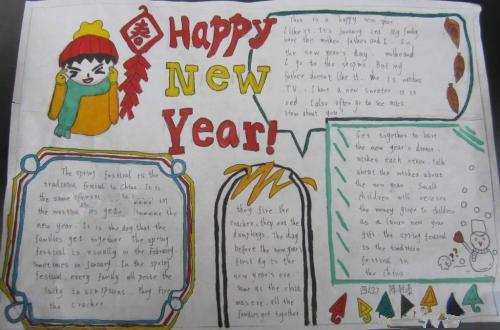 春
Happy
New
Year!
This is a happy new year
I like it. It's January 2nd. My family
have the mother father and I. In
the new year's day. mother and
I go to the shopni. But my
father doesn't like it. He is watches
TV. I have a new sweater is is
red. I also often go to see
How about you?
Get together to have
the new year's dinner.
wishes each other. talk
about the wishes about
the new year. Small
children will receive
the money given to children
as a lunar new year
gift the spring festival
is the tradition
festival in
the China
The spring festival is the
tradition festival in China. It is
the same
the months
new year. It is the day that the
families get together. The spring
festival is usually in the february.
Sometimes in January. In the spring
festival, every family all paste the
They fire
the cracker.
they fire the
cracker, they eat the
dumplings. The day
before the new year's
first day is the
new year's eve.
Same as the chist
mas eve. all the
families get together